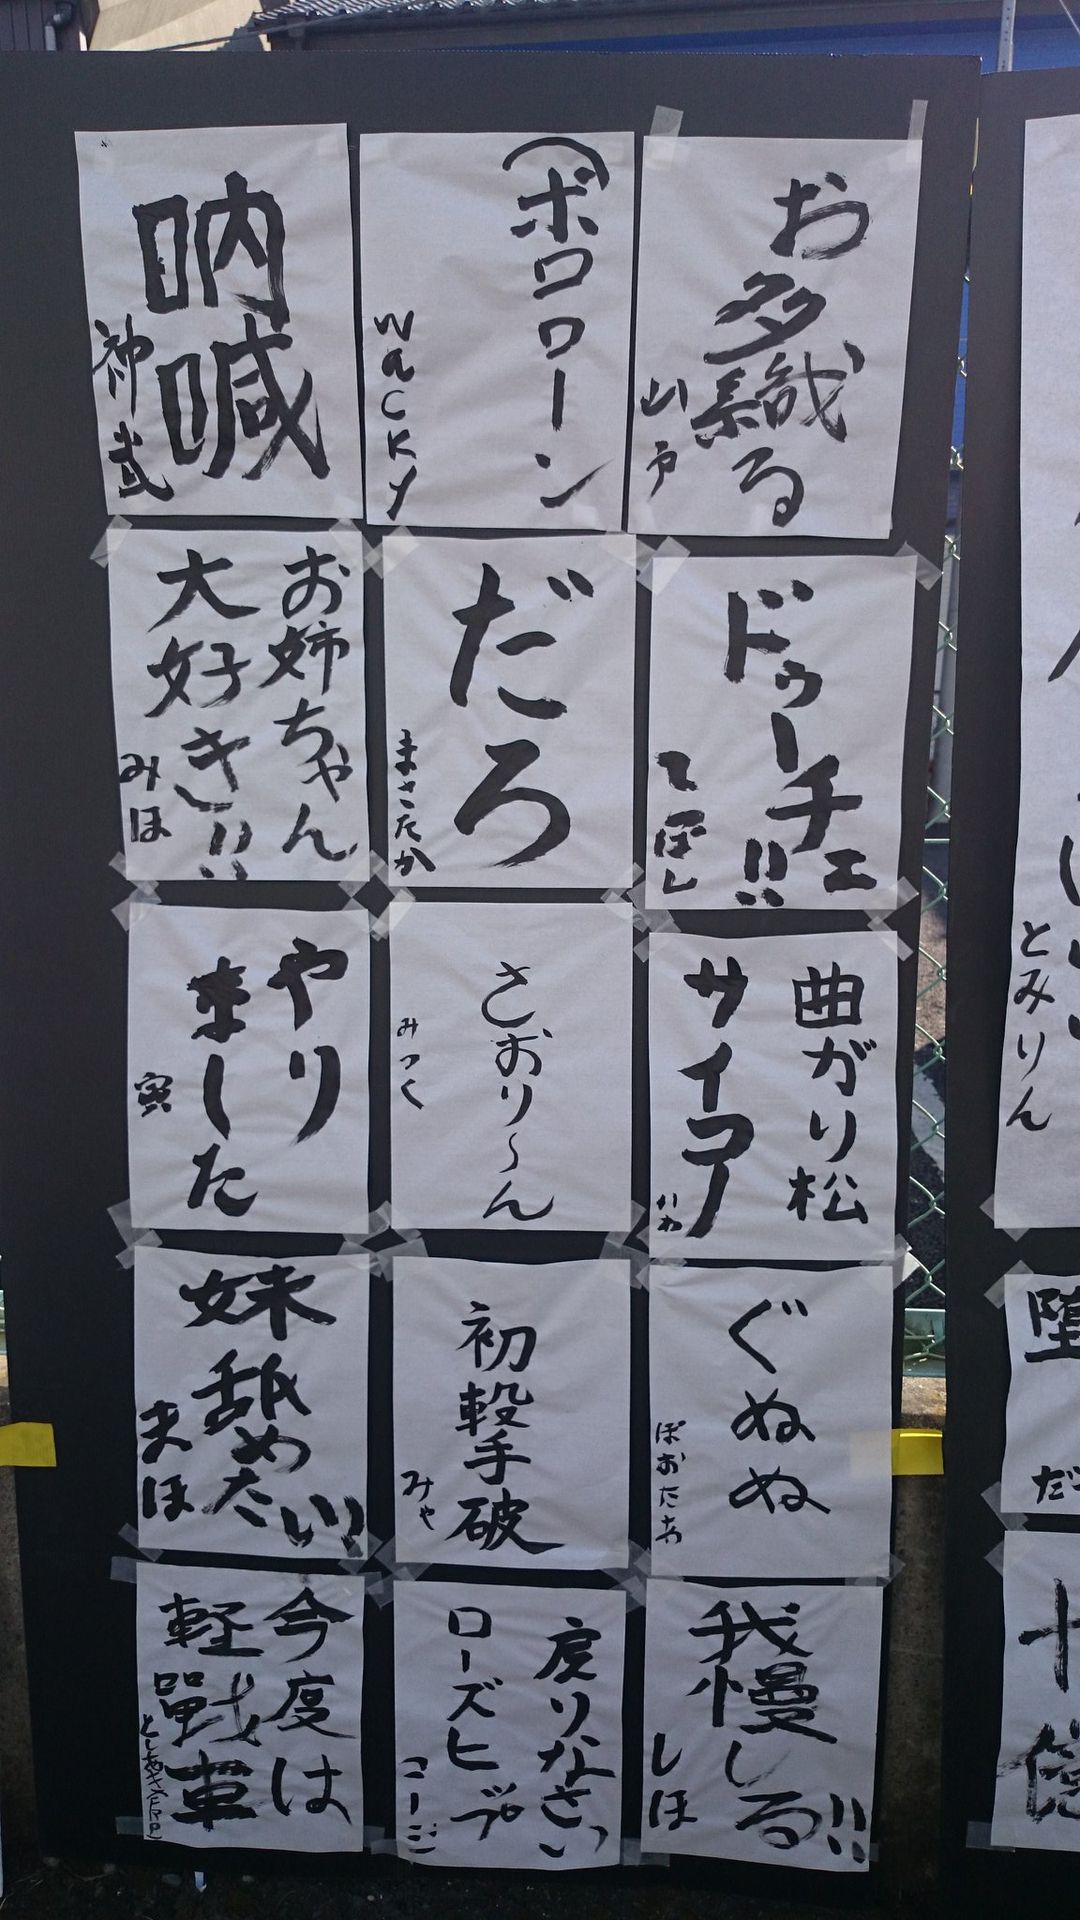 お多織る
山戸
(ポロローン
wacky
吶喊
神武
ドゥーチェ!!
てぽし
だろ
まさたか
お姉ちゃん
大好き!!
みほ
曲がり松
サイコー
いわ
さおり〜ん
みっく
やり
ました
寅
ぐぬぬ
ぽおたあ
初撃破
みや
妹
舐めたい!!
まほ
我慢しる!!
しほ
戻りなさいっ
ローズヒップ
こーじ
今度は
軽戰車
とみりん
堕
だ